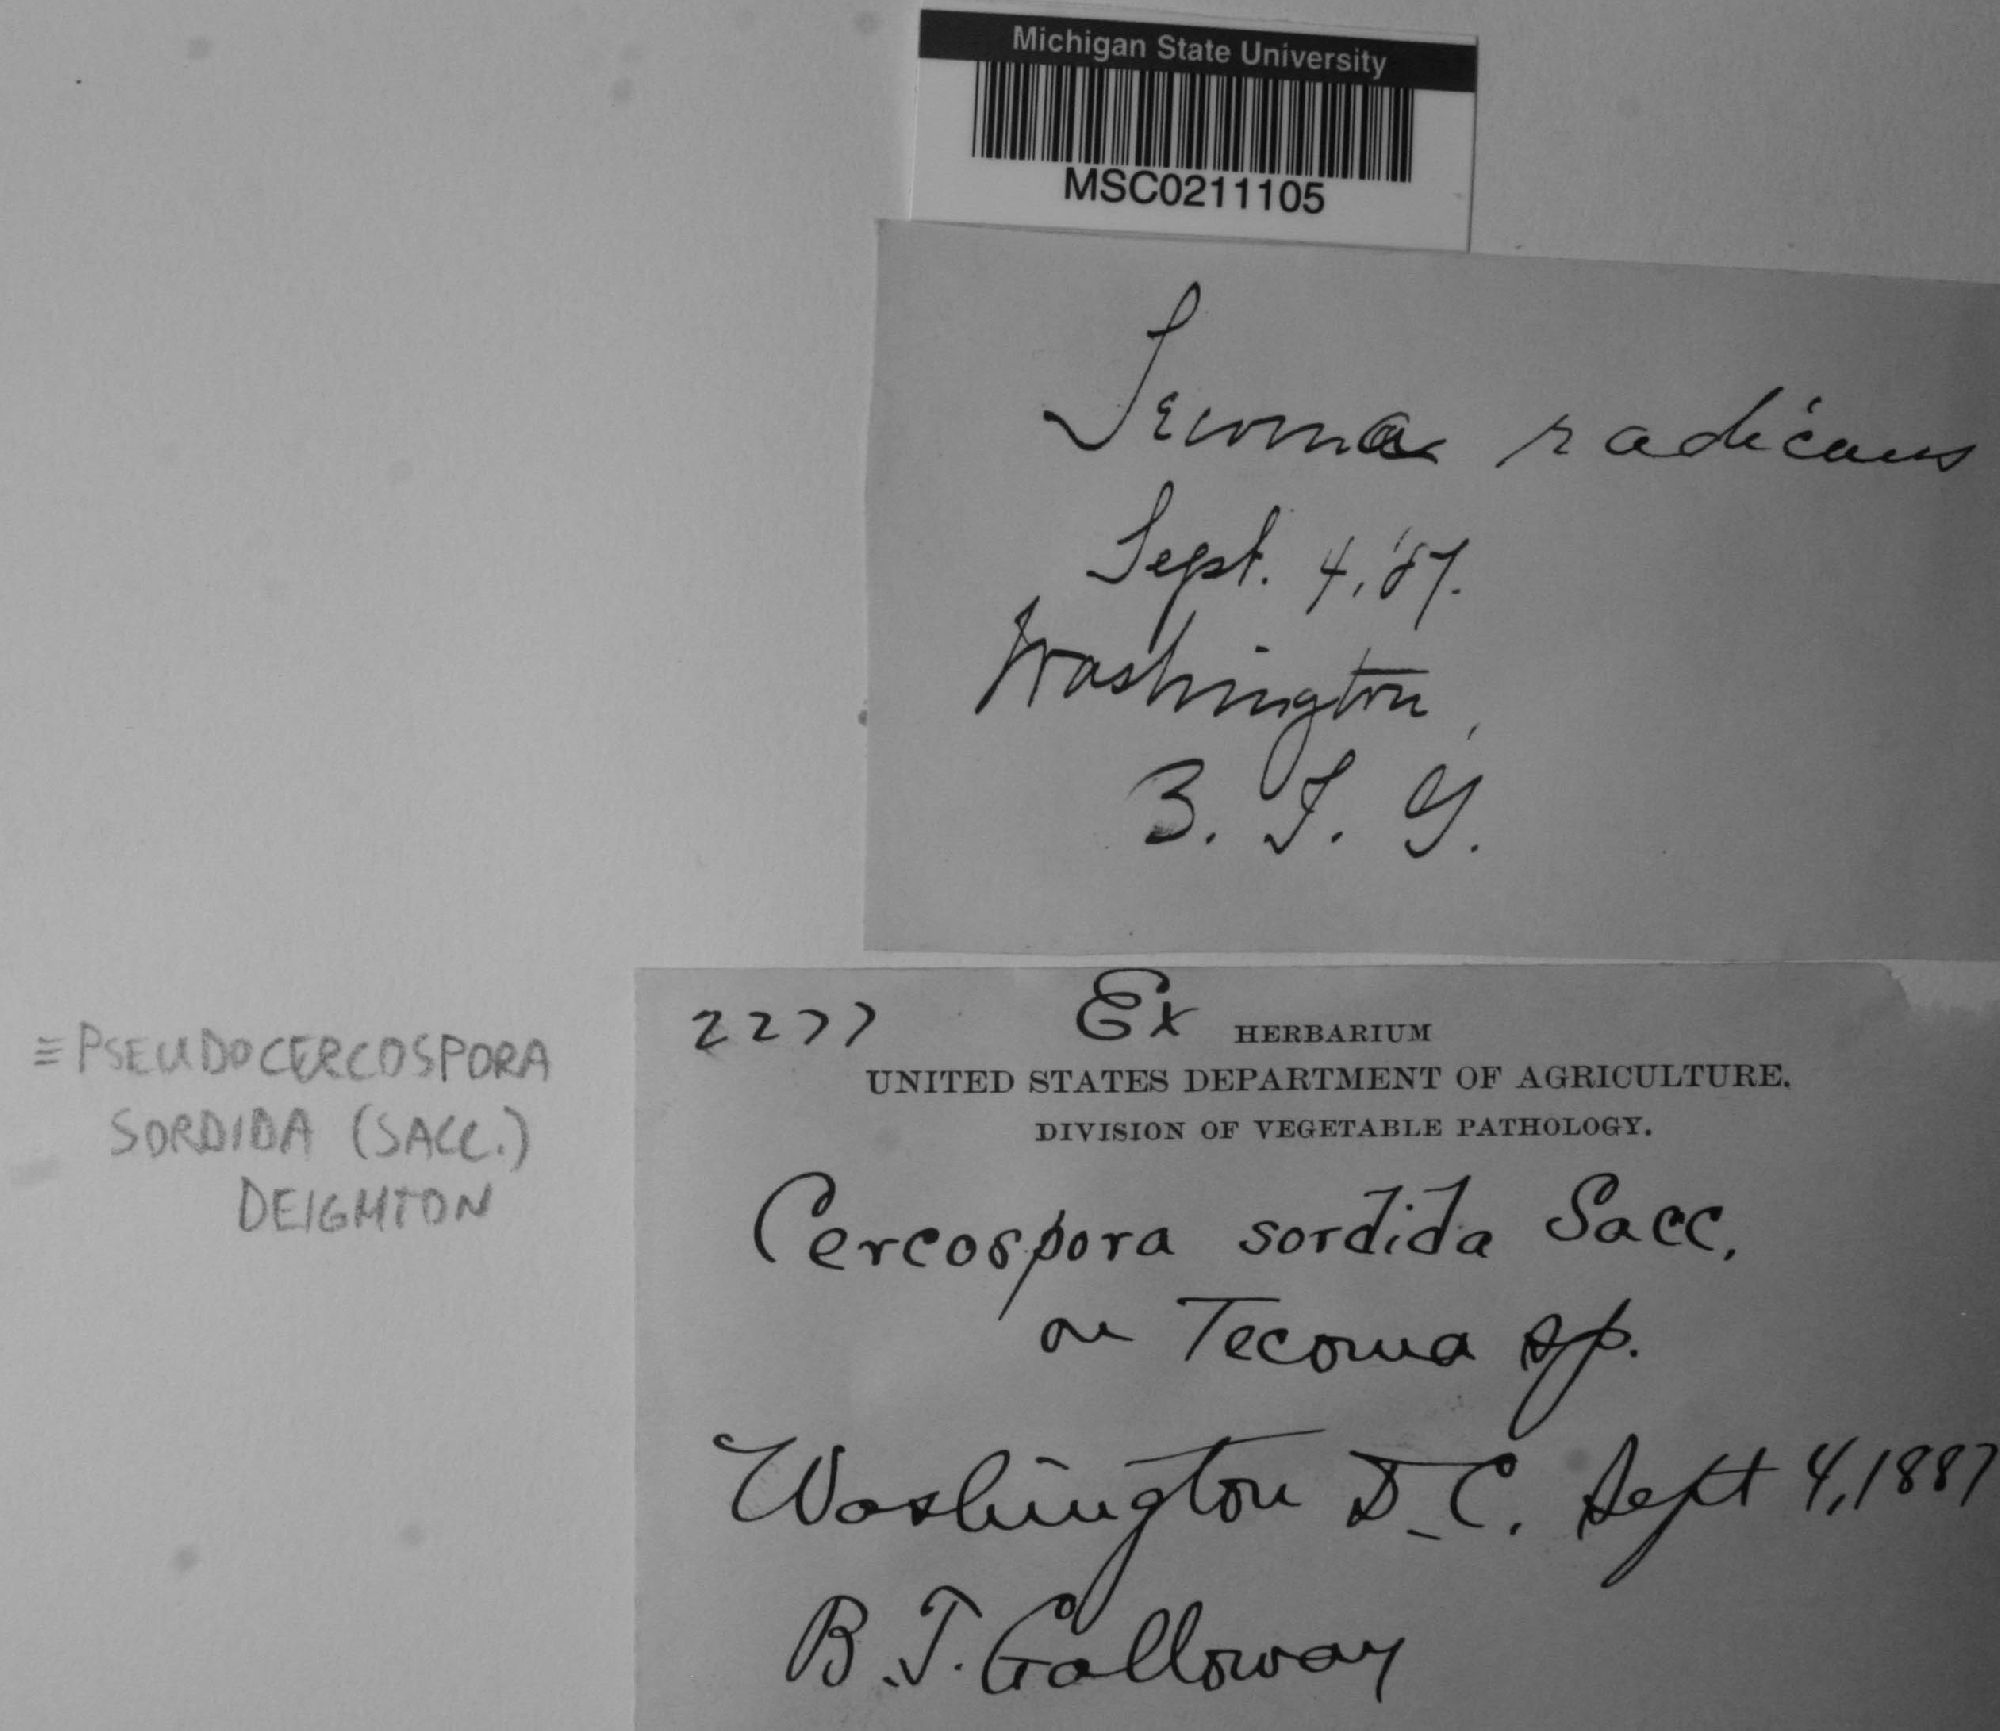 Michigan State University
MSC0211105
Tecoma radicans
Sept. 4, '87.
Washington,
B. T. G.
2277 Ex HERBARIUM
UNITED STATES DEPARTMENT OF AGRICULTURE.
DIVISION OF VEGETABLE PATHOLOGY.
Cercospora sordida Sacc.
on Tecoma sp.
Washington D.C. Sept 4, 1887
B.T. Galloway
≡ PSEUDOCERCOSPORA
SORDIDA (SACC.)
DEIGHTON